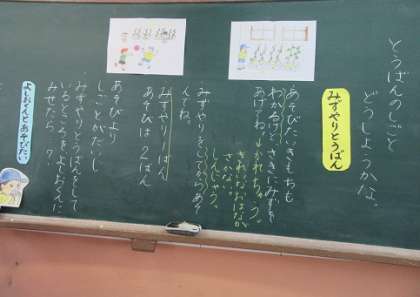 とうばんのしごと
どうしようかな。
みずやりとうばん
あそびたいきもちも
わかるけど、さきにみずを
あげてね。→かれちゃう。
きれいなおはなが
さかない。
しんじゃう。
みずやりをしてからあそ
んでね。
みずやり1ばん
あそびは2ばん
あそびより
しごとがだいじ
みずやりとうばんをして
いるところをよしおくんに
みせたら、?
よしおくんとあそびたい